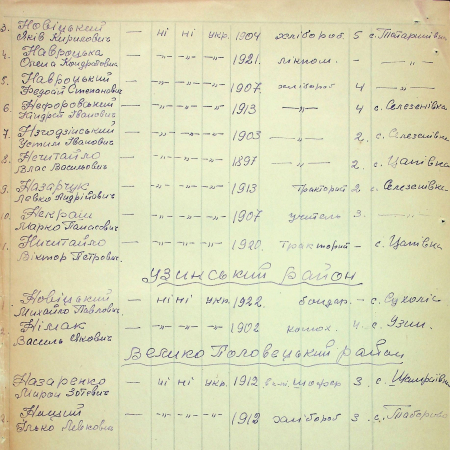 3. Новіцький — ні ні укр. 1904 хлібороб 5 с. Татаринівка
Яків Кирикович
4. Навроцька — -"- -"- -"- 1921. - -"-
Олена Кіндратівна
5. Навроцький — -"- -"- -"- 1907. хлібороб 4 -"-
Федосій Степанович
6. Нефоровський — -"- -"- -"- 1913 -"- 4 с. Селезенівка
Андрій Іванович
7. — -"- -"- -"- 1903 -"- 2. с. Селезенівка
Устим Іванович
8. Нечитайло — -"- -"- -"- 1897 -"- 2. с. Цапівка
Влас Васильович
9. Назарчук — -"- -"- -"- 1913 тракторист 2 с. Селезенівка
Левко Андрійович
10. Некраш — -"- -"- -"- 1907 учитель 3 -"-
Марко Панасович
1. Ничитайло — -"- -"- -"- 1920. тракторист - с. Цапівка
Віктор Петрович.
Узинський район
Новіцький — ні ні укр 1922. бондар. - с. Сухоліс
Михайло Павлович
2. Німак — -"- -"- -"- 1902 конюх. 4 с. Узин.
Василь Якович
Велико Половецький район
Назаренко — ні ні укр. 1912 шофер 3. с.
Мирон Зотевич
Ниций — -"- -"- -"- 1912 хлібороб 3. с.
Ілько Левкович